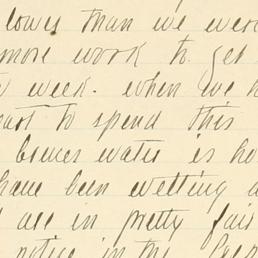 lower than we were
more work to get
week. when we h
to spend this
water is ho
have been wetting a
all in pretty fair
notice in the